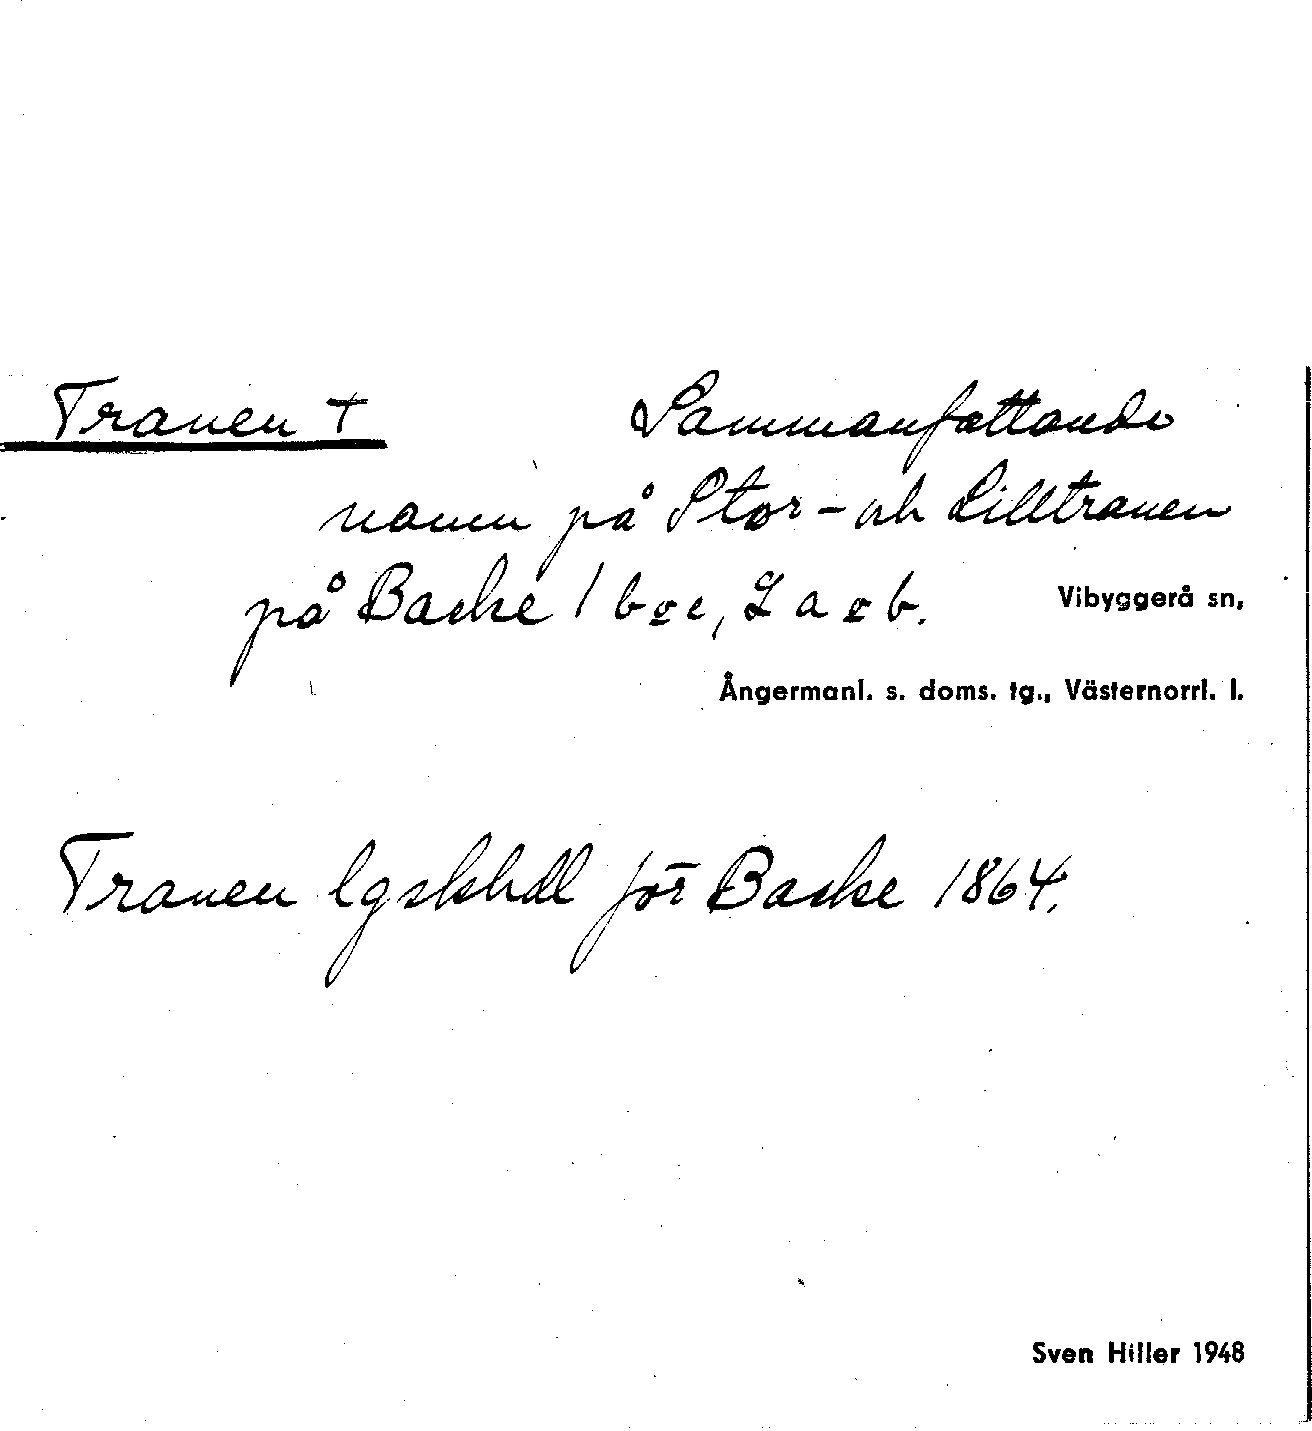 Tranen + Sammanfattande
namn på Stor- och Lilltranen
på Backe 1 b o c, 2 a o b. Vibyggerå sn,
Ångermanl. s. doms. tg., Västernorrl. l.
Tranen lgskhdl för Backe 1864.
Sven Hiller 1948